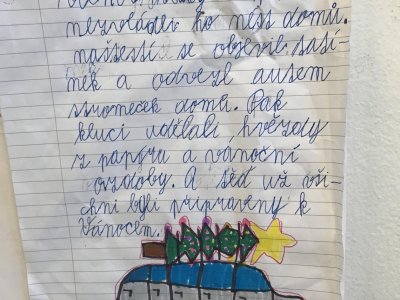 nezvládev ho nést domů.
naštěstí se objevil tatí-
nek a odvezl autem
stromeček domů. Pak
kluci udělali hvězdy
z papíru a vánoční
ozdoby. A teď už vši-
chni byli připraveny k
Vánocem.